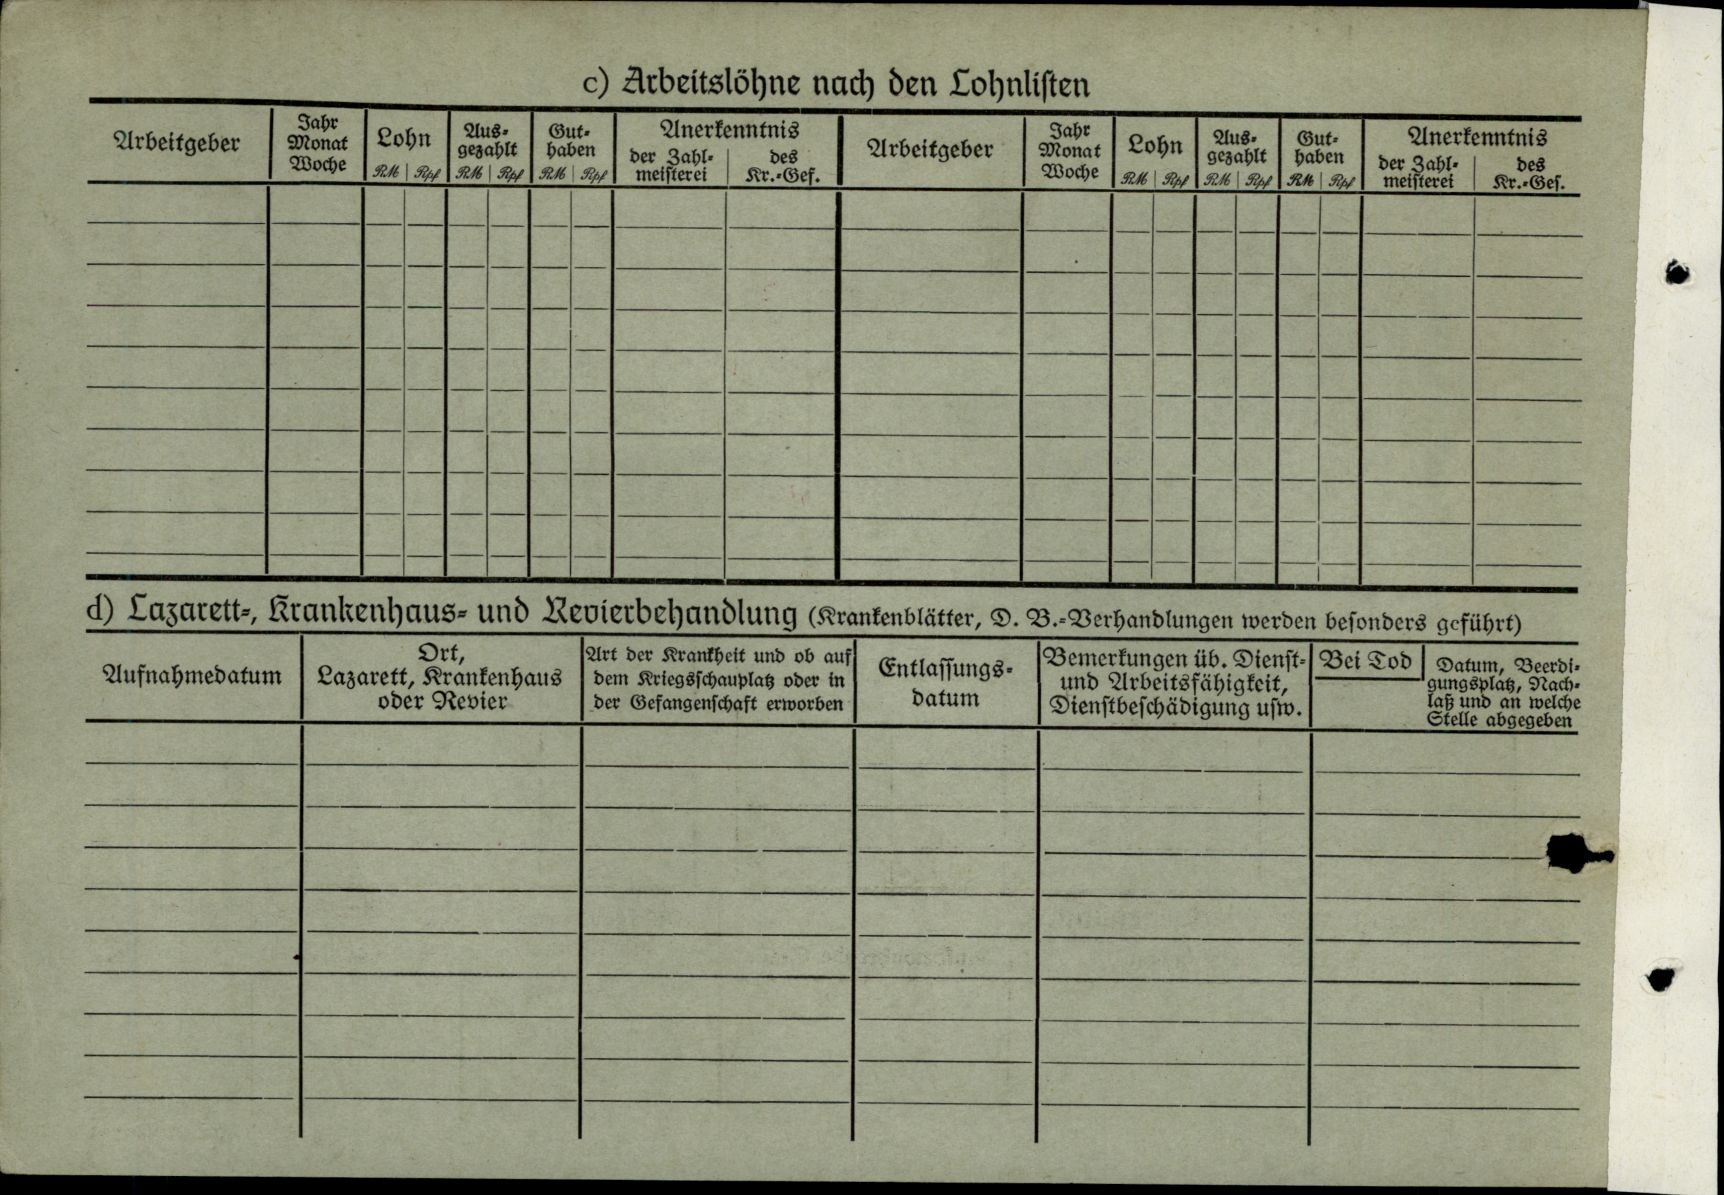 c) Arbeitslöhne nach den Lohnlisten
Arbeitgeber
Jahr
Monat
Woche
Lohn
RM Rpf
Aus-
gezahlt
RM Rpf
Gut-
haben
RM Rpf
Anerkenntnis
der Zahl-
meisterei
des
Kr.-Gef.
Arbeitgeber
Jahr
Monat
Woche
Lohn
RM Rpf
Aus-
gezahlt
RM Rpf
Gut-
haben
RM Rpf
Anerkenntnis
der Zahl-
meisterei
des
Kr.-Gef.
d) Lazarett-, Krankenhaus- und Revierbehandlung (Krankenblätter, D. B.-Verhandlungen werden besonders geführt)
Aufnahmedatum
Ort,
Lazarett, Krankenhaus
oder Revier
Art der Krankheit und ob auf
dem Kriegsschauplatz oder in
der Gefangenschaft erworben
Entlassungs-
datum
Bemerkungen üb. Dienst-
und Arbeitsfähigkeit,
Dienstbeschädigung usw.
Bei Tod
Datum, Beerdi-
gungsplatz, Nach-
laß und an welche
Stelle abgegeben